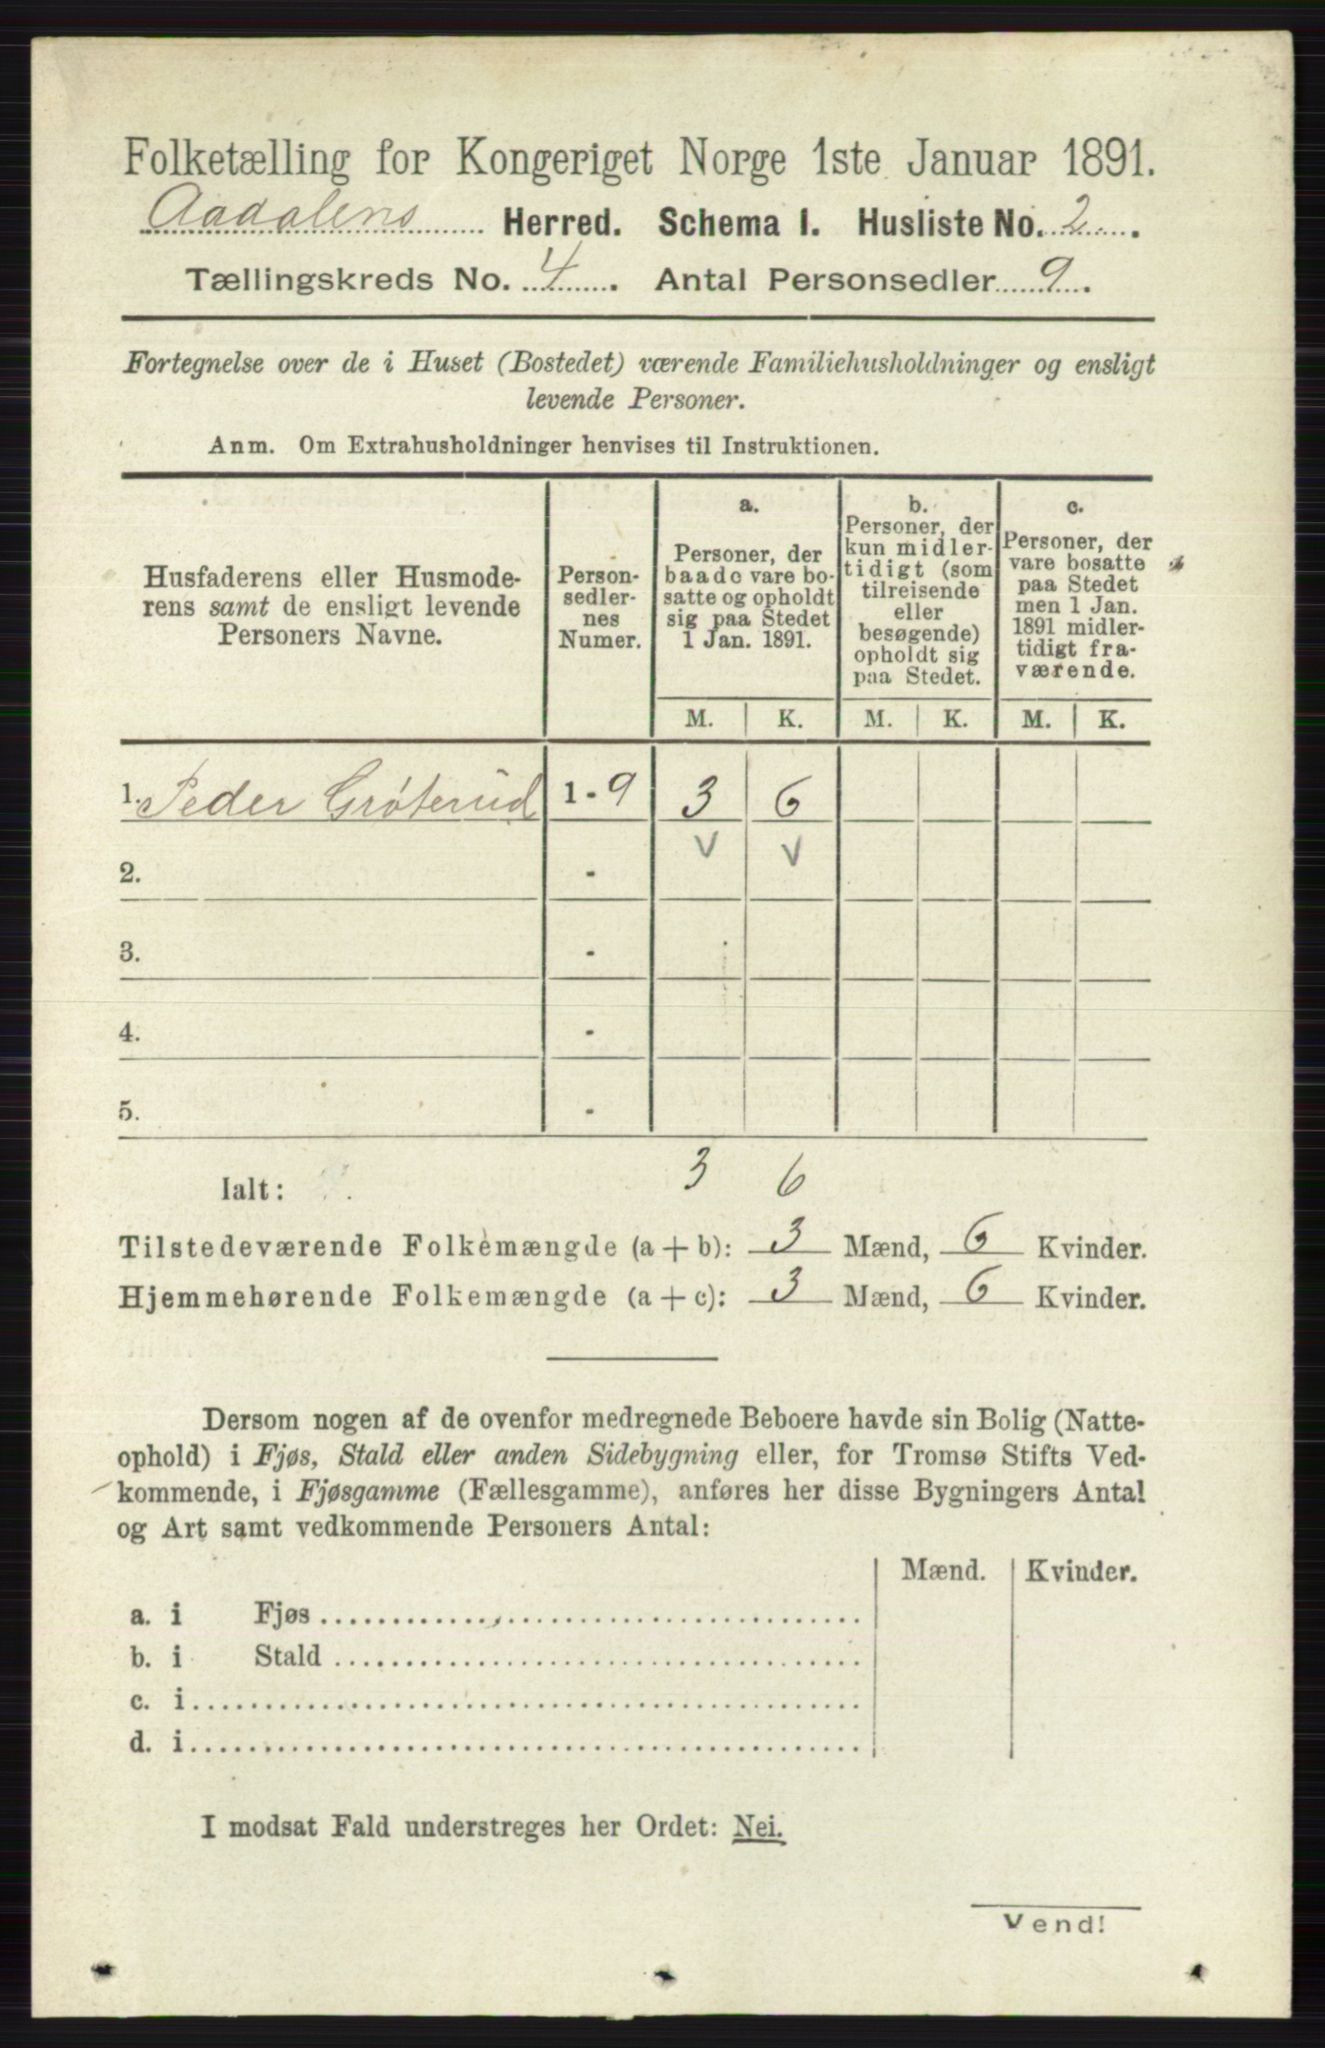 Folketælling for Kongeriget Norge 1ste Januar 1891.
Aadalens Herred. Schema I. Husliste No. 2.
Tællingskreds No. 4. Antal Personsedler 9.
Fortegnelse over de i Huset (Bostedet) værende Familiehusholdninger og ensligt
levende Personer.
Anm. Om Extrahusholdninger henvises til Instruktionen.
Husfaderens eller Husmode-
rens samt de ensligt levende
Personers Navne.
Person-
sedler-
nes
Numer.
a.
Personer, der
baade vare bo-
satte og opholdt
sig paa Stedet
1 Jan. 1891.
b.
Personer, der
kun midler-
tidigt (som
tilreisende
eller
besøgende)
opholdt sig
paa Stedet.
c.
Personer, der
vare bosatte
paa Stedet
men 1 Jan.
1891 midler-
tidigt fra-
værende.
M. K. M. K. M. K.
1. Peder Grøterud 1 - 9 3 6
v v
2. -
3. -
4. -
5. -
Ialt: 3 6
Tilstedeværende Folkemængde (a + b): 3 Mænd, 6 Kvinder.
Hjemmehørende Folkemængde (a + c): 3 Mænd, 6 Kvinder.
Dersom nogen af de ovenfor medregnede Beboere havde sin Bolig (Natte-
ophold) i Fjøs, Stald eller anden Sidebygning eller, for Tromsø Stifts Ved-
kommende, i Fjøsgamme (Fællesgamme), anføres her disse Bygningers Antal
og Art samt vedkommende Personers Antal:
Mænd. Kvinder.
a. i Fjøs
b. i Stald
c. i
d. i
I modsat Fald understreges her Ordet: Nei.
Vend!